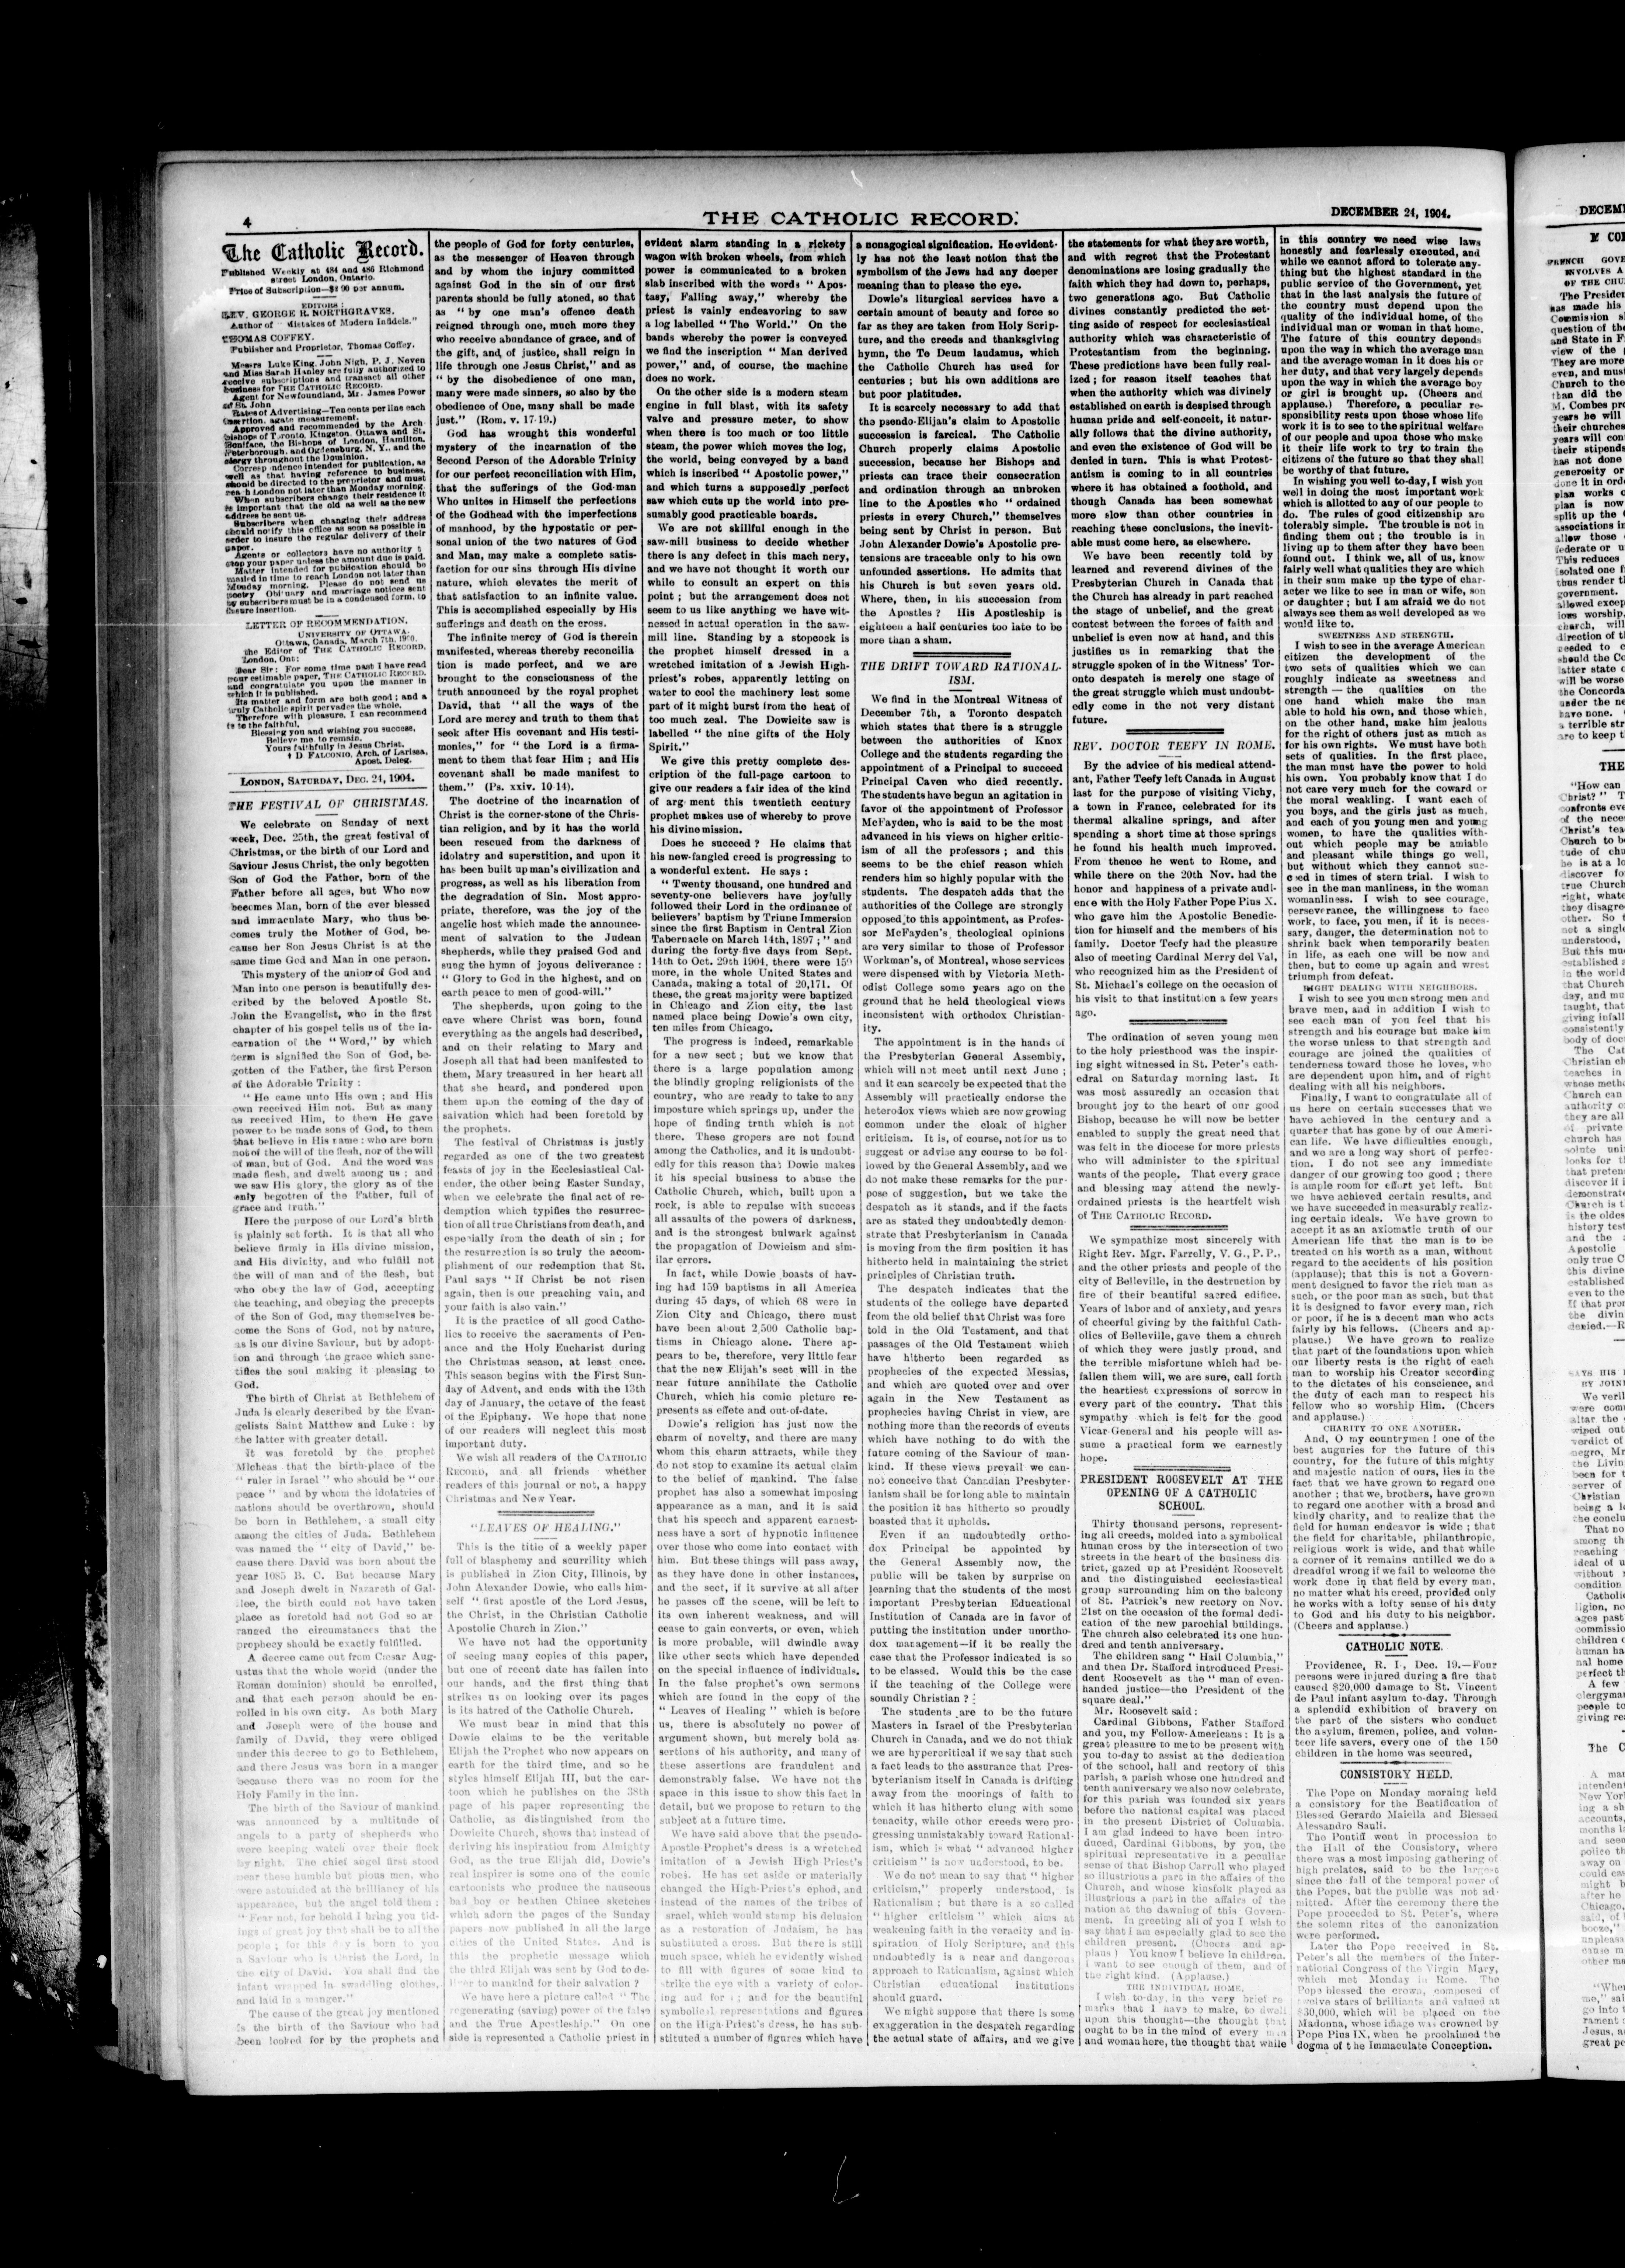 4
THE CATHOLIC RECORD.
DECEMBER 24, 1904.
The Catholic Record.
Published Weekly at 484 and 486 Richmond
street London, Ontario.
Price of Subscription—$2 00 per annum.
EDITORS :
REV. GEORGE R. NORTHGRAVES.
Author of " Mistakes of Modern Infidels."
THOMAS COFFEY.
Publisher and Proprietor, Thomas Coffey.
Messrs Luke King, John Nigh, P. J. Neven
and Miss Sarah Hanley are fully authorized to
receive subscriptions and transact all other
business for THE CATHOLIC RECORD.
Agent for Newfoundland, Mr. James Power
of St. John
Rates of Advertising—Ten cents per line each
insertion, agate measurement.
Approved and recommended by the Arch
bishops of Toronto, Kingston, Ottawa and St.
Boniface, the Bishops of London, Hamilton,
Peterborough, and Ogdensburg, N. Y., and the
clergy throughout the Dominion.
LETTER OF RECOMMENDATION.
UNIVERSITY OF OTTAWA.
Ottawa, Canada, March 7th, 1900.
the Editor of THE CATHOLIC RECORD,
London, Ont:
Dear Sir: For some time past I have read
your estimable paper, THE CATHOLIC RECORD,
and congratulate you upon the manner in
which it is published.
Its matter and form are both good ; and a
truly Catholic spirit pervades the whole.
Therefore with pleasure, I can recommend
it to the faithful.
Blessing you and wishing you success,
Believe me, to remain,
Yours faithfully in Jesus Christ,
† D FALCONIO, Arch. of Larissa,
Apost. Deleg.
LONDON, SATURDAY, DEC. 24, 1904.
THE FESTIVAL OF CHRISTMAS.
We celebrate on Sunday of next
week, Dec. 25th, the great festival of
Christmas, or the birth of our Lord and
Saviour Jesus Christ, the only begotten
Son of God the Father, born of the
Father before all ages, but Who now
becomes Man, born of the ever blessed
and immaculate Mary, who thus be-
comes truly the Mother of God, be-
cause her Son Jesus Christ is at the
same time God and Man in one person.
This mystery of the union of God and
Man into one person is beautifully des-
cribed by the beloved Apostle St.
John the Evangelist, who in the first
chapter of his gospel tells us of the in-
carnation of the "Word," by which
term is signified the Son of God, be-
gotten of the Father, the first Person
of the Adorable Trinity :
" He came unto His own ; and His
own received Him not. But as many
as received Him, to them He gave
power to be made sons of God, to them
that believe in His name : who are born
not of the will of the flesh, nor of the will
of man, but of God. And the word was
made flesh, and dwelt among us ; and
we saw His glory, the glory as of the
only begotten of the Father, full of
grace and truth."
Here the purpose of our Lord's birth
is plainly set forth. It is that all who
believe firmly in His divine mission,
and His divinity, and who fulfill not
the will of man and of the flesh, but
who obey the law of God, accepting
the teaching, and obeying the precepts
of the Son of God, may themselves be-
come the Sons of God, not by nature,
as is our divine Saviour, but by adopt-
ion and through the grace which sanc-
tifies the soul making it pleasing to
God.
The birth of Christ at Bethlehem of
Juda is clearly described by the Evan-
gelists Saint Matthew and Luke : by
the latter with greater detail.
It was foretold by the prophet
Micheas that the birth-place of the
" ruler in Israel " who should be " our
peace " and by whom the idolatries of
nations should be overthrown, should
be born in Bethlehem, a small city
among the cities of Juda. Bethlehem
was named the " city of David," be-
cause there David was born about the
year 1085 B. C. But because Mary
and Joseph dwelt in Nazareth of Gal-
ilee, the birth could not have taken
place as foretold had not God so ar
ranged the circumstances that the
prophecy should be exactly fulfilled.
A decree came out from Cæsar Aug-
ustus that the whole world (under the
Roman dominion) should be enrolled,
and that each person should be en-
rolled in his own city. As both Mary
and Joseph were of the house and
family of David, they were obliged
under this decree to go to Bethlehem,
and there Jesus was born in a manger
because there was no room for the
Holy Family in the inn.
The birth of the Saviour of mankind
was announced by a multitude of
angels to a party of shepherds who
were keeping watch over their flock
by night. The chief angel first stood
near these humble but pious men, who
were astounded at the brilliancy of his
appearance, but the angel told them :
" Fear not, for behold I bring you tid-
ings of great joy that shall be to all the
people ; for this day is born to you
a Saviour who is Christ the Lord, in
the city of David. You shall find the
infant wrapped in swaddling clothes,
and laid in a manger."
The cause of the great joy mentioned
is the birth of the Saviour who had
been looked for by the prophets and
the people of God for forty centuries,
as the messenger of Heaven through
and by whom the injury committed
against God in the sin of our first
parents should be fully atoned, so that
as " by one man's offence death
reigned through one, much more they
who receive abundance of grace, and of
the gift, and, of justice, shall reign in
life through one Jesus Christ," and as
" by the disobedience of one man,
many were made sinners, so also by the
obedience of One, many shall be made
just." (Rom. v. 17-19.)
God has wrought this wonderful
mystery of the incarnation of the
Second Person of the Adorable Trinity
for our perfect reconciliation with Him,
that the sufferings of the God-man
Who unites in Himself the perfections
of the Godhead with the imperfections
of manhood, by the hypostatic or per-
sonal union of the two natures of God
and Man, may make a complete satis-
faction for our sins through His divine
nature, which elevates the merit of
that satisfaction to an infinite value.
This is accomplished especially by His
sufferings and death on the cross.
The infinite mercy of God is therein
manifested, whereas thereby reconcilia
tion is made perfect, and we are
brought to the consciousness of the
truth announced by the royal prophet
David, that " all the ways of the
Lord are mercy and truth to them that
seek after His covenant and His testi-
monies," for " the Lord is a firma-
ment to them that fear Him ; and His
covenant shall be made manifest to
them." (Ps. xxiv. 10-14).
The doctrine of the incarnation of
Christ is the corner-stone of the Chris-
tian religion, and by it has the world
been rescued from the darkness of
idolatry and superstition, and upon it
has been built up man's civilization and
progress, as well as his liberation from
the degradation of Sin. Most appro-
priate, therefore, was the joy of the
angelic host which made the announce-
ment of salvation to the Judean
shepherds, while they praised God and
sung the hymn of joyous deliverance :
" Glory to God in the highest, and on
earth peace to men of good-will."
The shepherds, upon going to the
cave where Christ was born, found
everything as the angels had described,
and on their relating to Mary and
Joseph all that had been manifested to
them, Mary treasured in her heart all
that she heard, and pondered upon
them upon the coming of the day of
salvation which had been foretold by
the prophets.
The festival of Christmas is justly
regarded as one of the two greatest
feasts of joy in the Ecclesiastical Cal-
ender, the other being Easter Sunday,
when we celebrate the final act of re-
demption which typifies the resurrec-
tion of all true Christians from death, and
especially from the death of sin ; for
the resurrection is so truly the accom-
plishment of our redemption that St.
Paul says " If Christ be not risen
again, then is our preaching vain, and
your faith is also vain."
It is the practice of all good Catho-
lics to receive the sacraments of Pen-
ance and the Holy Eucharist during
the Christmas season, at least once.
This season begins with the First Sun-
day of Advent, and ends with the 13th
day of January, the octave of the feast
of the Epiphany. We hope that none
of our readers will neglect this most
important duty.
We wish all readers of the CATHOLIC
RECORD, and all friends whether
readers of this journal or not, a happy
Christmas and New Year.
"LEAVES OF HEALING."
This is the title of a weekly paper
full of blasphemy and scurrility which
is published in Zion City, Illinois, by
John Alexander Dowie, who calls him-
self " first apostle of the Lord Jesus,
the Christ, in the Christian Catholic
Apostolic Church in Zion."
We have not had the opportunity
of seeing many copies of this paper,
but one of recent date has fallen into
our hands, and the first thing that
strikes us on looking over its pages
is its hatred of the Catholic Church.
We must bear in mind that this
Dowie claims to be the veritable
Elijah the Prophet who now appears on
earth for the third time, and so he
styles himself Elijah III, but the car-
toon which he publishes on the 38th
page of his paper representing the
Catholic, as distinguished from the
Dowieite Church, shows that instead of
deriving his inspiration from Almighty
God, as the true Elijah did, Dowie's
real inspirer is some one of the comic
cartoonists who produce the nauseous
bad boy or heathen Chinee sketches
which adorn the pages of the Sunday
papers now published in all the large
cities of the United States. And is
this the prophetic message which
the third Elijah was sent by God to de-
liver to mankind for their salvation ?
We have here a picture called " The
regenerating (saving) power of the false
and the True Apostleship." On one
side is represented a Catholic priest in
evident alarm standing in a rickety
wagon with broken wheels, from which
power is communicated to a broken
slab inscribed with the words " Apos-
tasy, Falling away," whereby the
priest is vainly endeavoring to saw
a log labelled " The World." On the
bands whereby the power is conveyed
we find the inscription " Man derived
power," and, of course, the machine
does no work.
On the other side is a modern steam
engine in full blast, with its safety
valve and pressure meter, to show
when there is too much or too little
steam, the power which moves the log,
the world, being conveyed by a band
which is inscribed " Apostolic power,"
and which turns a supposedly perfect
saw which cuts up the world into pre-
sumably good practicable boards.
We are not skillful enough in the
saw-mill business to decide whether
there is any defect in this mach nery,
and we have not thought it worth our
while to consult an expert on this
point ; but the arrangement does not
seem to us like anything we have wit-
nessed in actual operation in the saw-
mill line. Standing by a stopcock is
the prophet himself dressed in a
wretched imitation of a Jewish High-
priest's robes, apparently letting on
water to cool the machinery lest some
part of it might burst from the heat of
too much zeal. The Dowieite saw is
labelled " the nine gifts of the Holy
Spirit."
We give this pretty complete des-
cription of the full-page cartoon to
give our readers a fair idea of the kind
of arg ment this twentieth century
prophet makes use of whereby to prove
his divine mission.
Does he succeed ? He claims that
his new-fangled creed is progressing to
a wonderful extent. He says :
" Twenty thousand, one hundred and
seventy-one believers have joyfully
followed their Lord in the ordinance of
believers' baptism by Triune Immersion
since the first Baptism in Central Zion
Tabernacle on March 14th, 1897 ; " and
during the forty-five days from Sept.
14th to Oct. 29th 1904, there were 159
more, in the whole United States and
Canada, making a total of 20,171. Of
these, the great majority were baptized
in Chicago and Zion city, the last
named place being Dowie's own city,
ten miles from Chicago.
The progress is indeed, remarkable
for a new sect ; but we know that
there is a large population among
the blindly groping religionists of the
country, who are ready to take to any
imposture which springs up, under the
hope of finding truth which is not
there. These gropers are not found
among the Catholics, and it is undoubt-
edly for this reason that Dowie makes
it his special business to abuse the
Catholic Church, which, built upon a
rock, is able to repulse with success
all assaults of the powers of darkness,
and is the strongest bulwark against
the propagation of Dowieism and sim-
ilar errors.
In fact, while Dowie boasts of hav-
ing had 159 baptisms in all America
during 45 days, of which 68 were in
Zion City and Chicago, there must
have been about 2,500 Catholic bap-
tisms in Chicago alone. There ap-
pears to be, therefore, very little fear
that the new Elijah's sect will in the
near future annihilate the Catholic
Church, which his comic picture re-
presents as effete and out-of-date.
Dowie's religion has just now the
charm of novelty, and there are many
whom this charm attracts, while they
do not stop to examine its actual claim
to the belief of mankind. The false
prophet has also a somewhat imposing
appearance as a man, and it is said
that his speech and apparent earnest-
ness have a sort of hypnotic influence
over those who come into contact with
him. But these things will pass away,
as they have done in other instances,
and the sect, if it survive at all after
he passes off the scene, will be left to
its own inherent weakness, and will
cease to gain converts, or even, which
is more probable, will dwindle away
like other sects which have depended
on the special influence of individuals.
In the false prophet's own sermons
which are found in the copy of the
" Leaves of Healing " which is before
us, there is absolutely no power of
argument shown, but merely bold as-
sertions of his authority, and many of
these assertions are fraudulent and
demonstrably false. We have not the
space in this issue to show this fact in
detail, but we propose to return to the
subject at a future time.
We have said above that the pseudo-
Apostle-Prophet's dress is a wretched
imitation of a Jewish High-Priest's
robes. He has set aside or materially
changed the High-Priest's ephod, and
instead of the names of the tribes of
Israel, which would stamp his delusion
as a restoration of Judaism, he has
substituted a cross. But there is still
much space, which he evidently wished
to fill with figures of some kind to
strike the eye with a variety of color-
ing and for ; and for the beautiful
symbolical representations and figures
on the High-Priest's dress, he has sub-
stituted a number of figures which have
a nonagogical signification. He evident-
ly has not the least notion that the
symbolism of the Jews had any deeper
meaning than to please the eye.
Dowie's liturgical services have a
certain amount of beauty and force so
far as they are taken from Holy Scrip-
ture, and the creeds and thanksgiving
hymn, the Te Deum laudamus, which
the Catholic Church has used for
centuries ; but his own additions are
but poor platitudes.
It is scarcely necessary to add that
the psendo-Elijau's claim to Apostolic
succession is farcical. The Catholic
Church properly claims Apostolic
succession, because her Bishops and
priests can trace their consecration
and ordination through an unbroken
line to the Apostles who " ordained
priests in every Church," themselves
being sent by Christ in person. But
John Alexander Dowie's Apostolic pre-
tensions are traceable only to his own
unfounded assertions. He admits that
his Church is but seven years old.
Where, then, in his succession from
the Apostles ? His Apostleship is
eighteen a half centuries too late to be
more than a sham.
THE DRIFT TOWARD RATIONAL-
ISM.
We find in the Montreal Witness of
December 7th, a Toronto despatch
which states that there is a struggle
between the authorities of Knox
College and the students regarding the
appointment of a Principal to succeed
Principal Caven who died recently.
The students have begun an agitation in
favor of the appointment of Professor
McFayden, who is said to be the most
advanced in his views on higher critic-
ism of all the professors ; and this
seems to be the chief reason which
renders him so highly popular with the
students. The despatch adds that the
authorities of the College are strongly
opposed to this appointment, as Profes-
sor McFayden's theological opinions
are very similar to those of Professor
Workman's, of Montreal, whose services
were dispensed with by Victoria Meth-
odist College some years ago on the
ground that he held theological views
inconsistent with orthodox Christian-
ity.
The appointment is in the hands of
the Presbyterian General Assembly,
which will not meet until next June ;
and it can scarcely be expected that the
Assembly will practically endorse the
heterodox views which are now growing
common under the cloak of higher
criticism. It is, of course, not for us to
suggest or advise any course to be fol-
lowed by the General Assembly, and we
do not make these remarks for the pur-
pose of suggestion, but we take the
despatch as it stands, and if the facts
are as stated they undoubtedly demon-
strate that Presbyterianism in Canada
is moving from the firm position it has
hitherto held in maintaining the strict
principles of Christian truth.
The despatch indicates that the
students of the college have departed
from the old belief that Christ was fore
told in the Old Testament, and that
passages of the Old Testament which
have hitherto been regarded as
prophecies of the expected Messias,
and which are quoted over and over
again in the New Testament as
prophecies having Christ in view, are
nothing more than the records of events
which have nothing to do with the
future coming of the Saviour of man-
kind. If these views prevail we can-
not conceive that Canadian Presbyter-
ianism shall be for long able to maintain
the position it has hitherto so proudly
boasted that it upholds.
Even if an undoubtedly ortho-
dox Principal be appointed by
the General Assembly now, the
public will be taken by surprise on
learning that the students of the most
important Presbyterian Educational
Institution of Canada are in favor of
putting the institution under unortho-
dox management—if it be really the
case that the Professor indicated is so
to be classed. Would this be the case
if the teaching of the College were
soundly Christian ?
The students are to be the future
Masters in Israel of the Presbyterian
Church in Canada, and we do not think
we are hypercritical if we say that such
a fact leads to the assurance that Pres-
byterianism itself in Canada is drifting
away from the moorings of faith to
which it has hitherto clung with some
tenacity, while other creeds were pro-
gressing unmistakably toward Rational-
ism, which is what " advanced higher
criticism " is now understood, to be.
We do not mean to say that " higher
criticism," properly understood, is
Rationalism ; but there is a so called
" higher criticism " which aims at
weakening faith in the veracity and in-
spiration of Holy Scripture, and this
undoubtedly is a near and dangerous
approach to Rationalism, against which
Christian educational institutions
should guard.
We might suppose that there is some
exaggeration in the despatch regarding
the actual state of affairs, and we give
the statements for what they are worth,
and with regret that the Protestant
denominations are losing gradually the
faith which they had down to, perhaps,
two generations ago. But Catholic
divines constantly predicted the set-
ting aside of respect for ecclesiastical
authority which was characteristic of
Protestantism from the beginning.
These predictions have been fully real-
ized ; for reason itself teaches that
when the authority which was divinely
established on earth is despised through
human pride and self-conceit, it natur-
ally follows that the divine authority,
and even the existence of God will be
denied in turn. This is what Protest-
antism is coming to in all countries
where it has obtained a foothold, and
though Canada has been somewhat
more slow than other countries in
reaching these conclusions, the inevit-
able must come here, as elsewhere.
We have been recently told by
learned and reverend divines of the
Presbyterian Church in Canada that
the Church has already in part reached
the stage of unbelief, and the great
contest between the forces of faith and
unbelief is even now at hand, and this
justifies us in remarking that the
struggle spoken of in the Witness' Tor-
onto despatch is merely one stage of
the great struggle which must undoubt-
edly come in the not very distant
future.
REV. DOCTOR TEEFY IN ROME.
By the advice of his medical attend-
ant, Father Teefy left Canada in August
last for the purpose of visiting Vichy,
a town in France, celebrated for its
thermal alkaline springs, and after
spending a short time at those springs
he found his health much improved.
From thence he went to Rome, and
while there on the 20th Nov. had the
honor and happiness of a private audi-
ence with the Holy Father Pope Pius X.
who gave him the Apostolic Benedic-
tion for himself and the members of his
family. Doctor Teefy had the pleasure
also of meeting Cardinal Merry del Val,
who recognized him as the President of
St. Michael's college on the occasion of
his visit to that institution a few years
ago.
The ordination of seven young men
to the holy priesthood was the inspir-
ing sight witnessed in St. Peter's cath-
edral on Saturday morning last. It
was most assuredly an occasion that
brought joy to the heart of our good
Bishop, because he will now be better
enabled to supply the great need that
was felt in the diocese for more priests
who will administer to the spiritual
wants of the people. That every grace
and blessing may attend the newly-
ordained priests is the heartfelt wish
of THE CATHOLIC RECORD.
We sympathize most sincerely with
Right Rev. Mgr. Farrelly, V. G., P. P.,
and the other priests and people of the
city of Belleville, in the destruction by
fire of their beautiful sacred edifice.
Years of labor and of anxiety, and years
of cheerful giving by the faithful Cath-
olics of Belleville, gave them a church
of which they were justly proud, and
the terrible misfortune which had be-
fallen them will, we are sure, call forth
the heartiest expressions of sorrow in
every part of the country. That this
sympathy which is felt for the good
Vicar-General and his people will as-
sume a practical form we earnestly
hope.
PRESIDENT ROOSEVELT AT THE
OPENING OF A CATHOLIC
SCHOOL.
Thirty thousand persons, represent-
ing all creeds, molded into a symbolical
human cross by the intersection of two
streets in the heart of the business dis-
trict, gazed up at President Roosevelt
and the distinguished ecclesiastical
group surrounding him on the balcony
of St. Patrick's new rectory on Nov.
21st on the occasion of the formal dedi-
cation of the new parochial buildings.
The church also celebrated its one hun-
dred and tenth anniversary.
The children sang " Hail Columbia,"
and then Dr. Stafford introduced Presi-
dent Roosevelt as the " man of even-
handed justice—the President of the
square deal."
Mr. Roosevelt said :
Cardinal Gibbons, Father Stafford
and you, my Fellow-Americans : It is a
great pleasure to me to be present with
you to-day to assist at the dedication
of the school, hall and rectory of this
parish, a parish whose one hundred and
tenth anniversary we also now celebrate,
for this parish was founded six years
before the national capital was placed
in the present District of Columbia.
I am glad indeed to have been intro-
duced, Cardinal Gibbons, by you, the
spiritual representative in a peculiar
sense of that Bishop Carroll who played
so illustrious a part in the affairs of the
Church, and whose kinsfolk played as
illustrious a part in the affairs of the
nation at the dawning of this Govern-
ment. In greeting all of you I wish to
say that I am especially glad to see the
children present. (Cheers and ap-
plaus ) You know I believe in children.
I want to see enough of them, and of
the right kind. (Applause.)
THE INDIVIDUAL HOME.
I wish to-day, in the very brief re
marks that I have to make, to dwell
upon this thought—the thought that
ought to be in the mind of every man
and woman here, the thought that while
in this country we need wise laws
honestly and fearlessly executed, and
while we cannot afford to tolerate any-
thing but the highest standard in the
public service of the Government, yet
that in the last analysis the future of
the country must depend upon the
quality of the individual home, of the
individual man or woman in that home.
The future of this country depends
upon the way in which the average man
and the average woman in it does his or
her duty, and that very largely depends
upon the way in which the average boy
or girl is brought up. (Cheers and
applause.) Therefore, a peculiar re-
sponsibility rests upon those whose life
work it is to see to the spiritual welfare
of our people and upon those who make
it their life work to try to train the
citizens of the future so that they shall
be worthy of that future.
In wishing you well to-day, I wish you
well in doing the most important work
which is allotted to any of our people to
do. The rules of good citizenship are
tolerably simple. The trouble is not in
finding them out ; the trouble is in
living up to them after they have been
found out. I think we, all of us, know
fairly well what qualities they are which
in their sum make up the type of char-
acter we like to see in man or wife, son
or daughter ; but I am afraid we do not
always see them as well developed as we
would like to.
SWEETNESS AND STRENGTH.
I wish to see in the average American
citizen the development of the
two sets of qualities which we can
roughly indicate as sweetness and
strength — the qualities on the
one hand which make the man
able to hold his own, and those which,
on the other hand, make him jealous
for the right of others just as much as
for his own rights. We must have both
sets of qualities. In the first place,
the man must have the power to hold
his own. You probably know that I do
not care very much for the coward or
the moral weakling. I want each of
you boys, and the girls just as much,
and each of you young men and young
women, to have the qualities with-
out which people may be amiable
and pleasant while things go well,
but without which they cannot suc-
ceed in times of stern trial. I wish to
see in the man manliness, in the woman
womanliness. I wish to see courage,
perseverance, the willingness to face
work, to face, you men, if it is neces-
sary, danger, the determination not to
shrink back when temporarily beaten
in life, as each one will be now and
then, but to come up again and wrest
triumph from defeat.
RIGHT DEALING WITH NEIGHBORS.
I wish to see you men strong men and
brave men, and in addition I wish to
see each man of you feel that his
strength and his courage but make him
the worse unless to that strength and
courage are joined the qualities of
tenderness toward those he loves, who
are dependent upon him, and of right
dealing with all his neighbors.
Finally, I want to congratulate all of
us here on certain successes that we
have achieved in the century and a
quarter that has gone by of our Ameri-
can life. We have difficulties enough,
and we are a long way short of perfec-
tion. I do not see any immediate
danger of our growing too good ; there
is ample room for effort yet left. But
we have achieved certain results, and
we have succeeded in measurably realiz-
ing certain ideals. We have grown to
accept it as an axiomatic truth of our
American life that the man is to be
treated on his worth as a man, without
regard to the accidents of his position
(applause); that this is not a Govern-
ment designed to favor the rich man as
such, or the poor man as such, but that
it is designed to favor every man, rich
or poor, if he is a decent man who acts
fairly by his fellows. (Cheers and ap-
plause.) We have grown to realize
that part of the foundations upon which
our liberty rests is the right of each
man to worship his Creator according
to the dictates of his conscience, and
the duty of each man to respect his
fellow who so worship Him. (Cheers
and applause.)
CHARITY TO ONE ANOTHER.
And, O my countrymen ! one of the
best auguries for the future of this
country, for the future of this mighty
and majestic nation of ours, lies in the
fact that we have grown to regard one
another ; that we, brothers, have grown
to regard one another with a broad and
kindly charity, and to realize that the
field for human endeavor is wide ; that
the field for charitable, philanthropic,
religious work is wide, and that while
a corner of it remains untilled we do a
dreadful wrong if we fail to welcome the
work done in that field by every man,
no matter what his creed, provided only
he works with a lofty sense of his duty
to God and his duty to his neighbor.
(Cheers and applause.)
CATHOLIC NOTE.
Providence, R. I., Dec. 19.—Four
persons were injured during a fire that
caused $20,000 damage to St. Vincent
de Paul infant asylum to-day. Through
a splendid exhibition of bravery on
the part of the sisters who conduct
the asylum, firemen, police, and volun-
teer life savers, every one of the 150
children in the home was secured,
CONSISTORY HELD.
The Pope on Monday morning held
a consistory for the Beatification of
Blessed Gerardo Maiella and Blessed
Alessandro Sauli.
The Pontiff went in procession to
the Hall of the Consistory, where
there was a most imposing gathering of
high prelates, said to be the largest
since the fall of the temporal power of
the Popes, but the public was not ad-
mitted. After the ceremony there the
Pope proceeded to St. Peter's, where
the solemn rites of the canonization
were performed.
Later the Pope received in St.
Peter's all the members of the Inter-
national Congress of the Virgin Mary,
which met Monday in Rome. The
Pope blessed the crown, composed of
twelve stars of brilliants and valued at
$30,000, which will be placed on the
Madonna, whose image was crowned by
Pope Pius IX, when he proclaimed the
dogma of the Immaculate Conception.